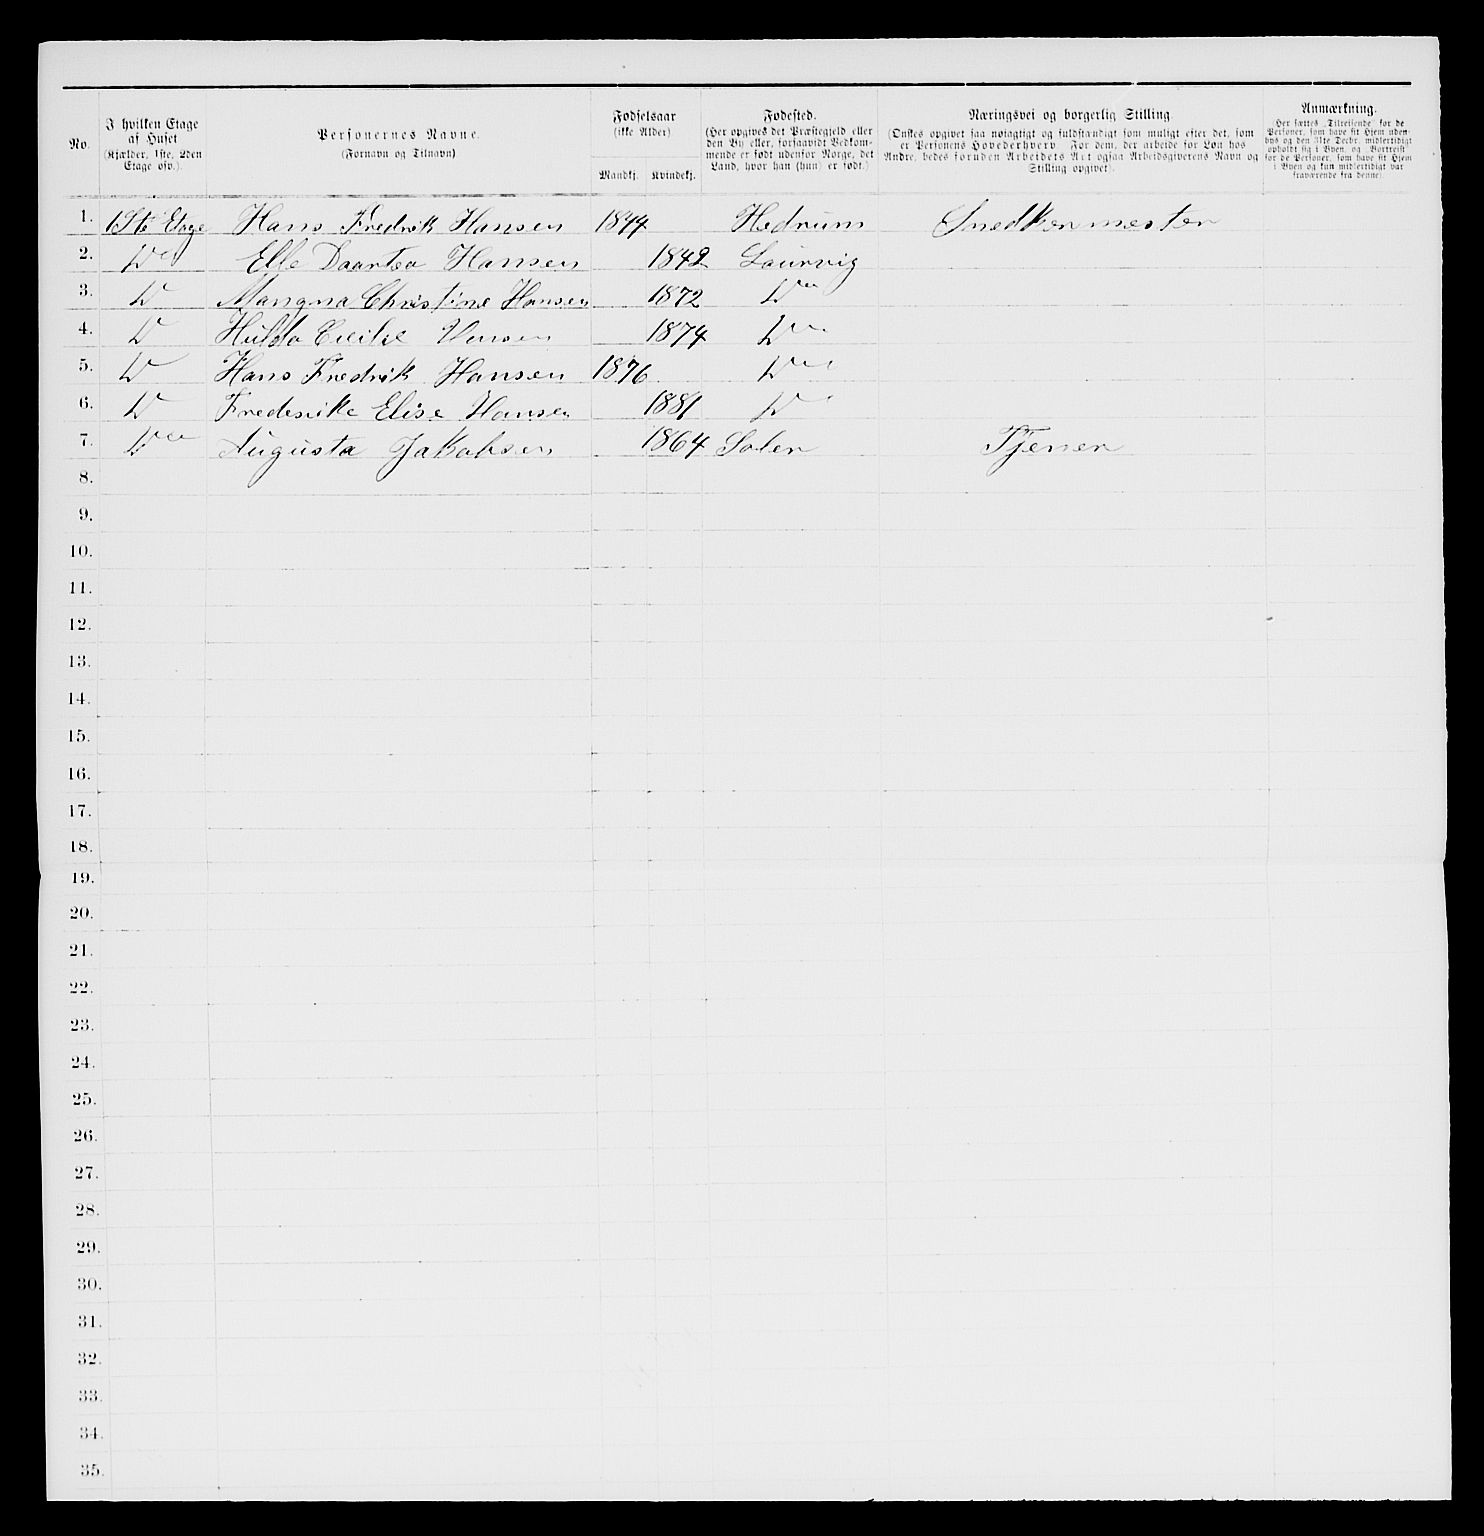 No.
I hvilken Etage af Huset (Kjælder, 1ste, 2den Etage osv.).
Personernes Navne. (Fornavn og Tilnavn)
Fødselsaar (ikke Alder)
Mandkj. Kvindekj.
Fødested. (Her opgives det Præstegjeld eller den By eller, forsaavidt Vedkommende er født udenfor Norge, det Land, hvor han (hun) er født.)
Næringsvei og borgerlig Stilling. (Ønskes opgivet saa nøiagtigt og fuldstændigt som muligt efter det, som er Personens Hovederhverv. For dem, der arbeide for Løn hos Andre, bedes foruden Arbeidets Art ogsaa Arbeidsgiverens Navn og Stilling opgivet).
Anmærkning. (Her sættes „Tilreisende" for de Personer, som have sit Hjem udenbys og den 31te Decbr. midlertidigt opholdt sig i Byen, og „Bortreist" for de Personer, som have sit Hjem i Byen og kun midlertidigt var fraværende fra denne).
1. 1Ste Etage Hans Fredrik Hansen 1844 Hedrum Snedkermester
2. Do Elle Daartea Hansen 1842 Laurvig
3. Do Mangna Christine Hansen 1872 Do
4. Do Hulda Cicilie Hansen 1874 Do
5. Do Hans Fredrik Hansen 1876 Do
6. Do Frederike Elise Hansen 1881 Do
7. Do Augusta Jakobsen 1864 Solen Tjener
8.
9.
10.
11.
12.
13.
14.
15.
16.
17.
18.
19.
20.
21.
22.
23.
24.
25.
26.
27.
28.
29.
30.
31.
32.
33.
34.
35.